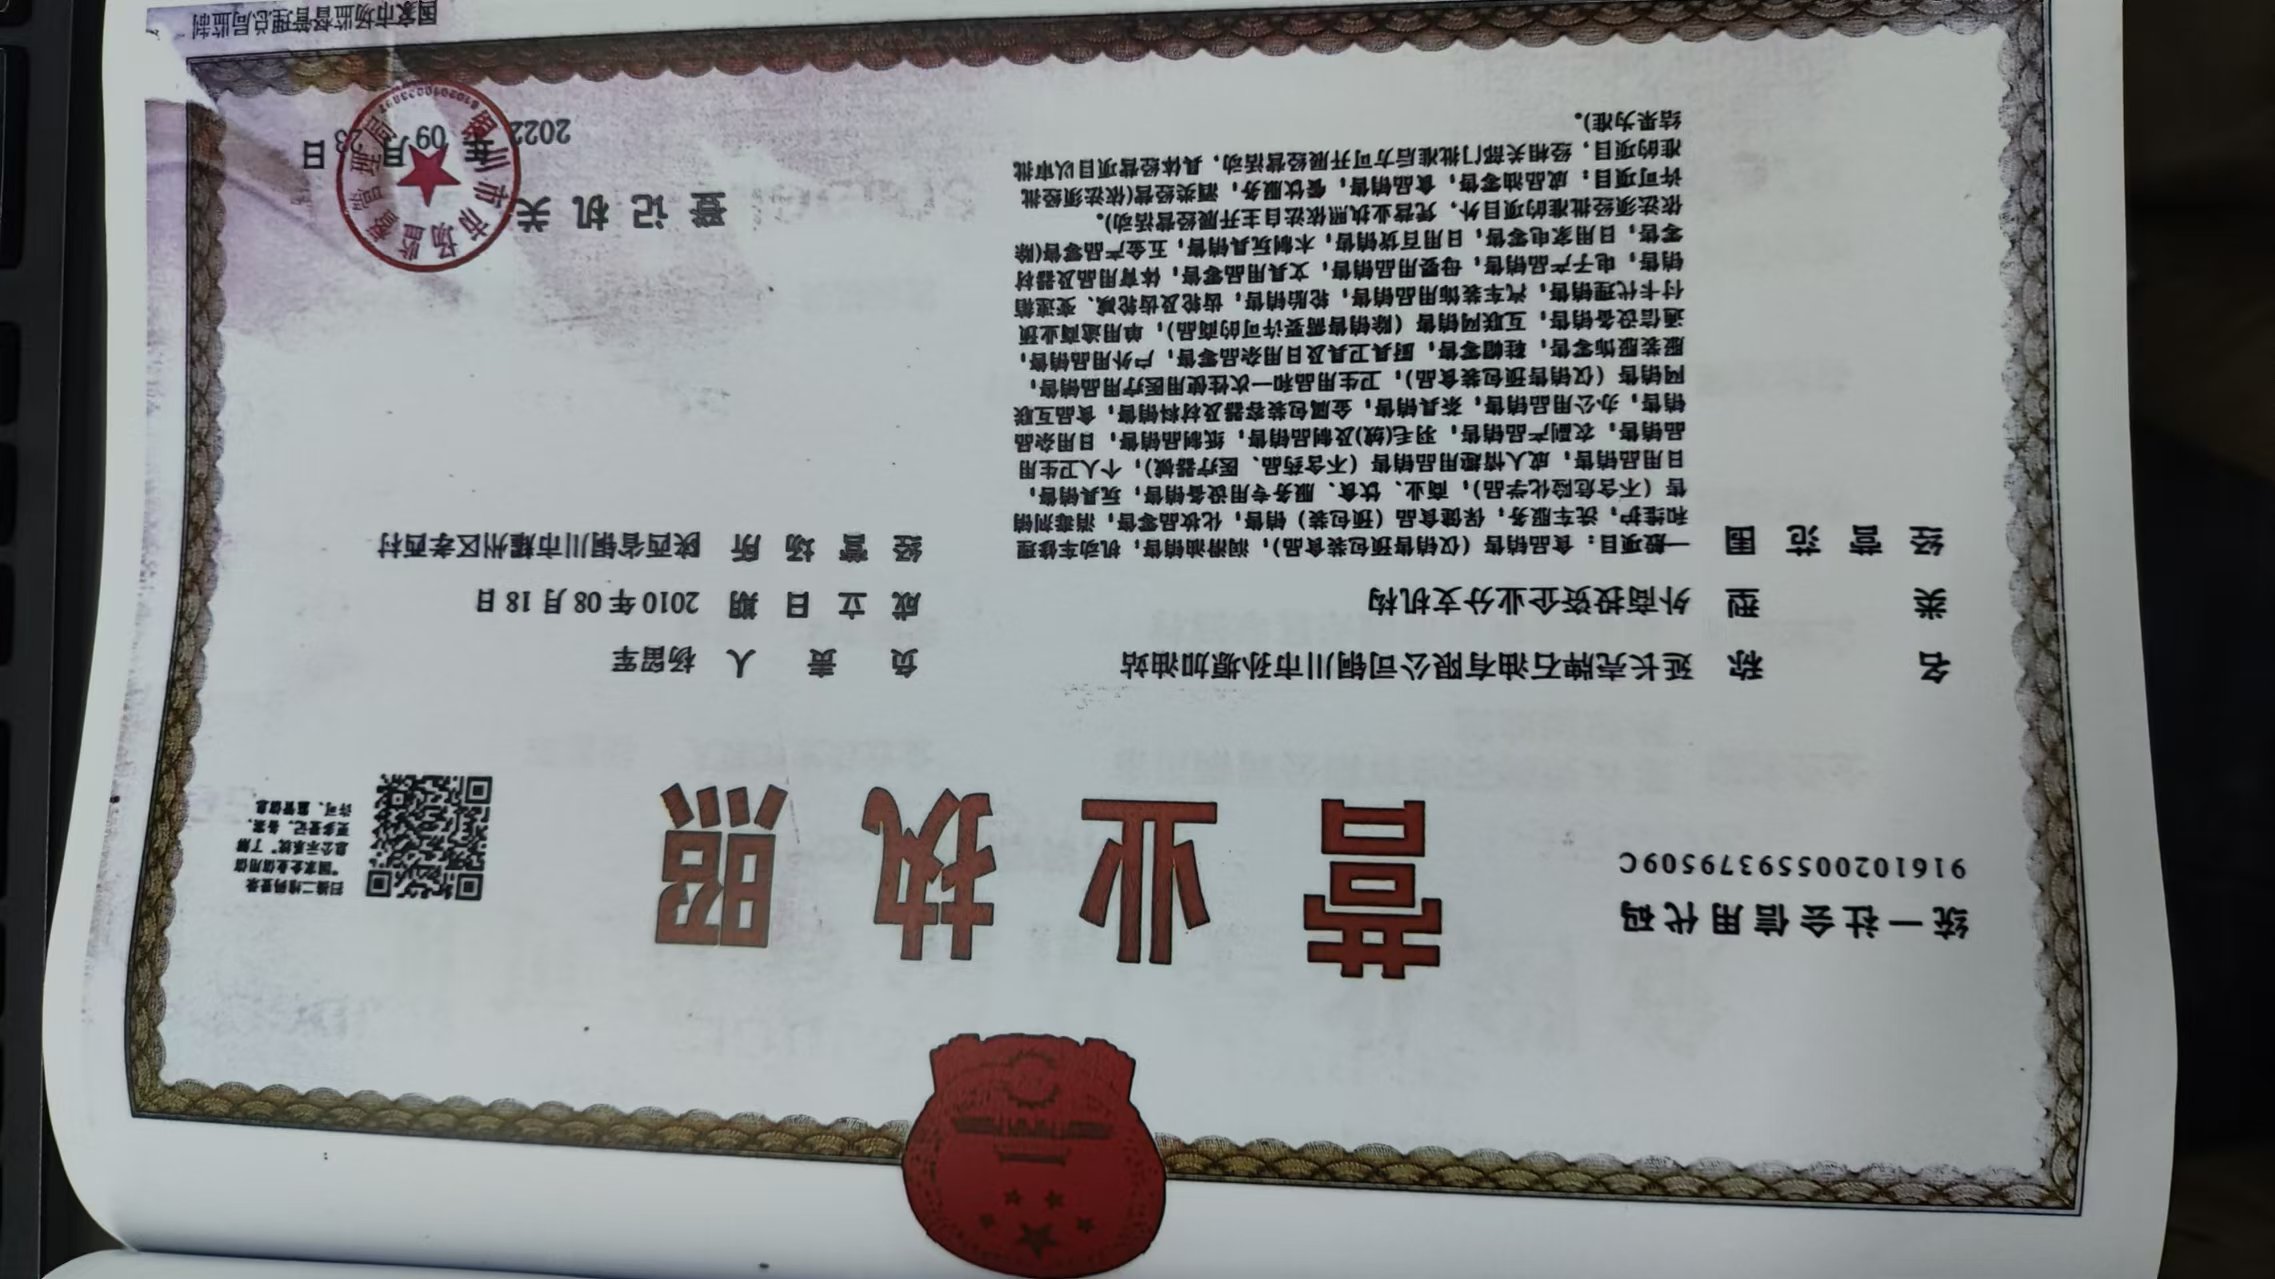 营业执照
统一社会信用代码
91610200559379509C
扫描二维码登录
“国家企业信用信
息公示系统”了解
更多登记、备案、
许可、监管信息。
名称 延长壳牌石油有限公司铜川市孙塬加油站
类型 外商投资企业分支机构
经营范围 一般项目：食品销售（仅销售预包装食品)；润滑油销售；机动车修理
和维护；洗车服务；保健食品（预包装）销售；化妆品零售；消毒剂销
售（不含危险化学品)；商业、饮食、服务专用设备销售；玩具销售；
日用品销售；成人情趣用品销售（不含药品、医疗器械)；个人卫生用
品销售；农副产品销售；羽毛(绒)及制品销售；纸制品销售；日用杂品
销售；办公用品销售；茶具销售；金属包装容器及材料销售；食品互联
网销售（仅销售预包装食品)；卫生用品和一次性使用医疗用品销售；
服装服饰零售；鞋帽零售；厨具卫具及日用杂品零售；户外用品销售；
通信设备销售；互联网销售（除销售需要许可的商品)；单用途商业预
付卡代理销售；汽车装饰用品销售；轮胎销售；齿轮及齿轮减、变速箱
销售；电子产品销售；母婴用品销售；文具用品零售；体育用品及器材
零售；日用家电零售；日用百货销售；木制玩具销售；五金产品零售(除
依法须经批准的项目外，凭营业执照依法自主开展经营活动)。
许可项目：成品油零售；食品销售；餐饮服务；酒类经营(依法须经批
准的项目，经相关部门批准后方可开展经营活动，具体经营项目以审批
结果为准)。
负责人 杨留军
成立日期 2010年08月18日
经营场所 陕西省铜川市耀州区孝西村
登记机关
铜川市市场监督管理局
2022年09月23日
国家市场监督管理总局监制